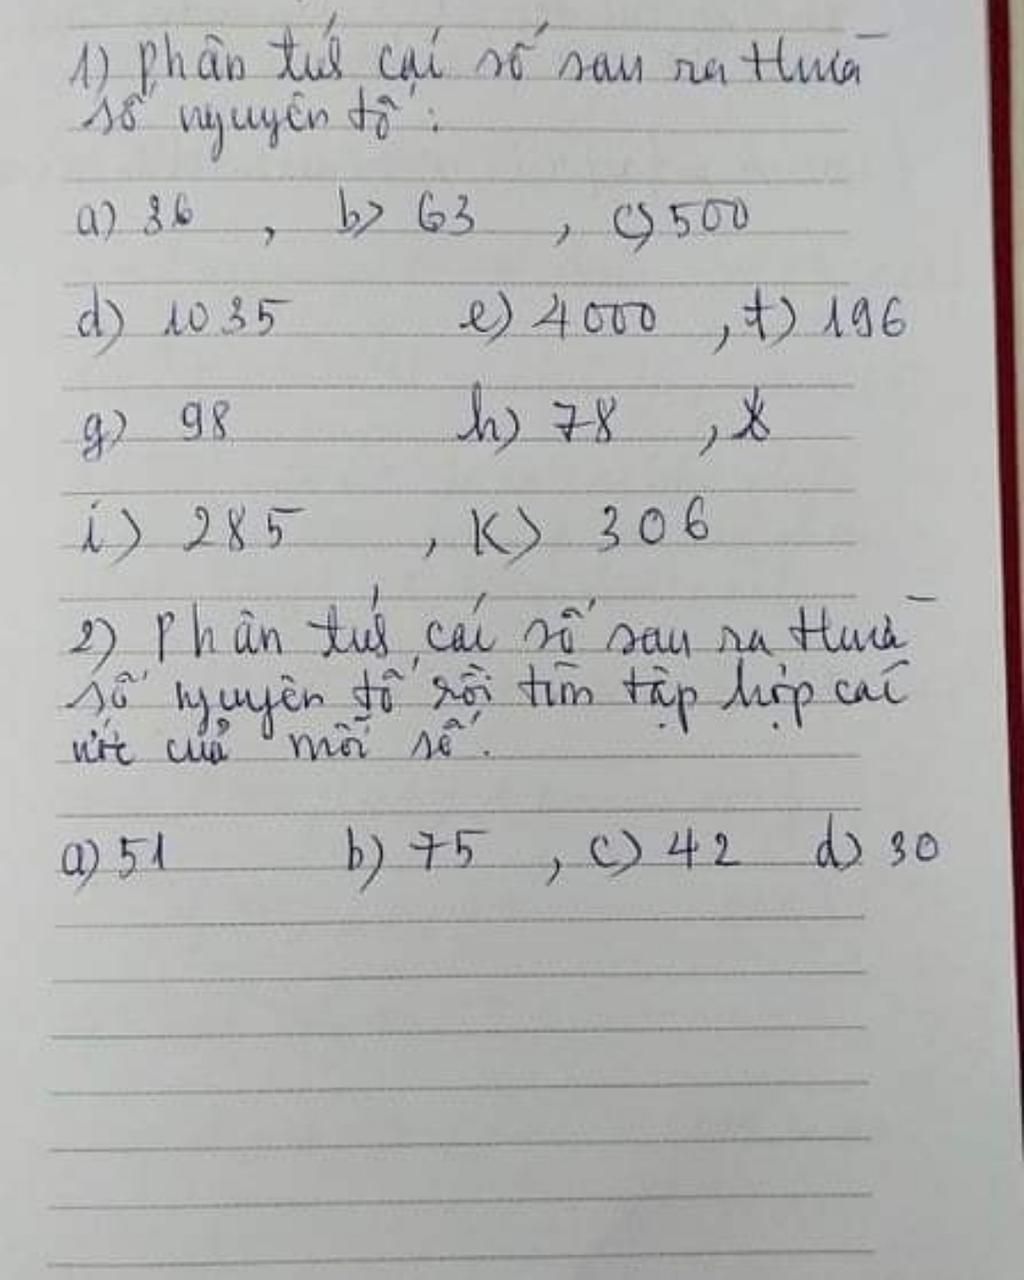 1) Phân tích các số sau ra thừa
số nguyên tố :
a) 36 , b) 63 , c) 500
d) 1035 e) 4000 , f) 196
g) 98 h) 78 ,
i) 285 , K) 306
2) Phân tích các số sau ra thừa
số nguyên tố rồi tìm tập hợp các
ước của mỗi số.
a) 51 b) 75 , c) 42 d) 30